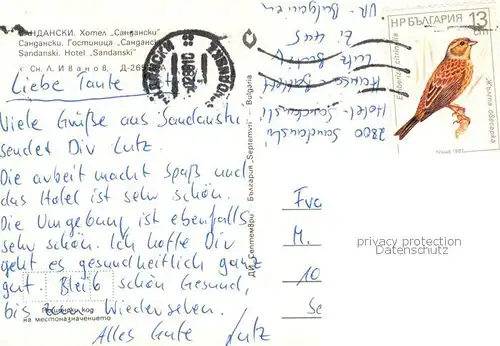 САНДАНСКИ. Хотел „Сандански“
Сандански. Гостиница „Сандански
Sandanski. Hotel "Sandanski"
К. Сн. Л. Иванов, Д-265
Liebe Tante
Viele Grüße aus Sandanski
sendet Dir Lutz.
Die arbeit macht Spaß und
das Hotel ist sehr schön.
Die Umgebung ist ebenfalls
sehr schön. Ich hoffe Dir
geht es gesundheitlich ganz
gut. Bleib schön Gesund,
bis zum Wiedersehen.
Alles Gute Lutz
Пощенски код
на местоназначението
ДИ „Септември“ България "Septemvri" - Bulgaria
VR-Bulgarien
Zi 405
Lutz
2800 Sandanski
Hotel-Sandanski
НР БЪЛГАРИЯ 13
ст
Emberiza citrinella
Жълта овесарка
Frau
M.
10
privacy protection
Datenschutz